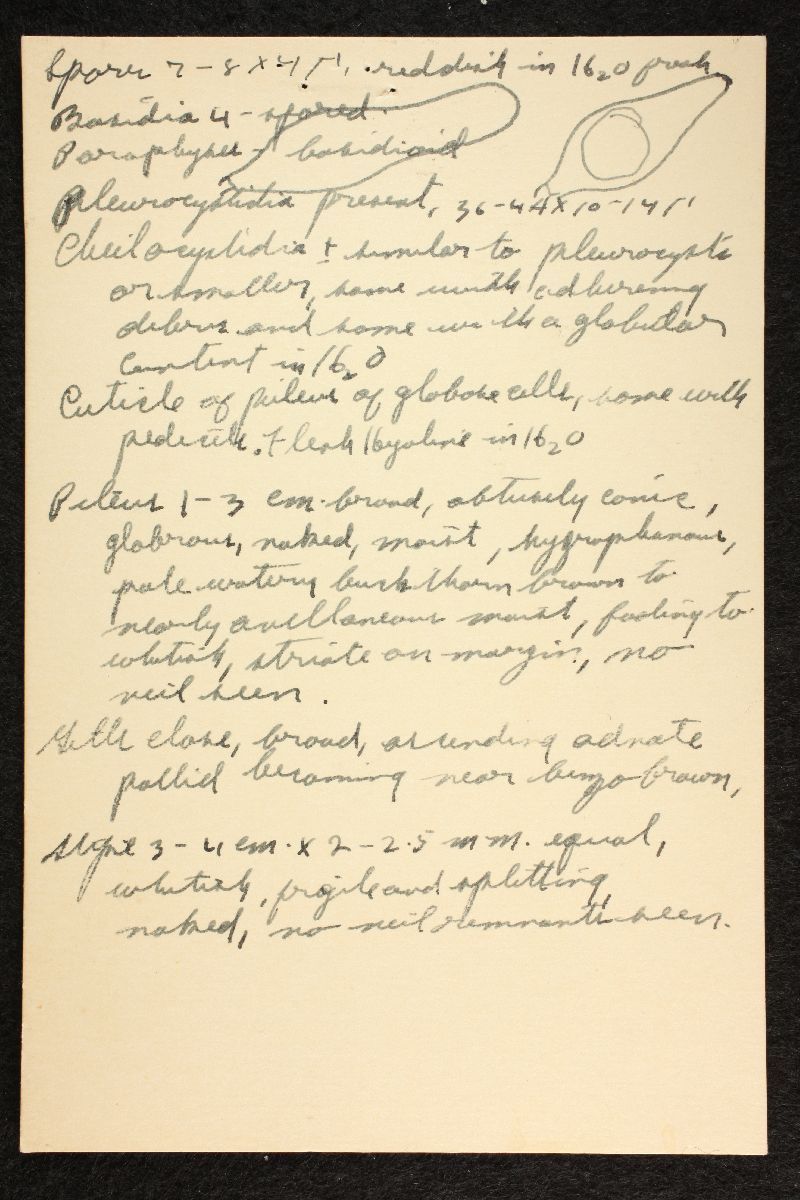 Spores 7-8 x 4 μ, reddish in H2O fresh
Basidia 4-spored.
Paraphyses - basidioid
Pleurocystidia present, 36-44 x 10-14 μ
Cheilocystidia ± similar to pleurocysts
or smaller, some with adhering
debris and some with a globular
content in H2O
Cuticle of pileus of globose cells, some with
pedicels. Flesh hyaline in H2O
Pileus 1-3 cm. broad, obtusely conic,
glabrous, naked, moist, hygrophanous,
pale watery buckthorn brown to
nearly avellaneous moist, fading to
whitish, striate on margin, no
veil seen.
Gills close, broad, ascending adnate
pallid becoming near benzo brown,
Stipe 3-4 cm. x 2-2.5 mm. equal,
whitish, fragile and splitting,
naked, no veil remnants seen.